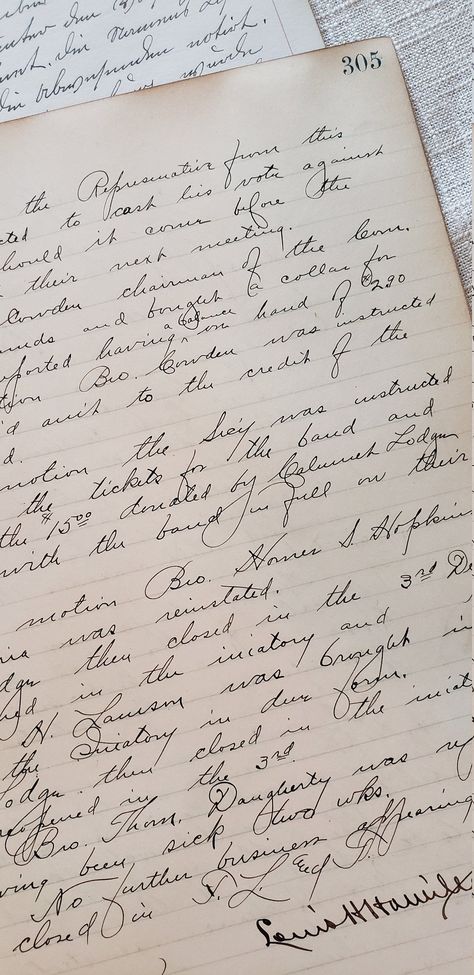 305
the Representative from this
cted to cash his vote against
should it come before the
their next meeting.
Cowden chairman of the Com.
unds and bought a collar for
ported having a balance on hand of $2.90
tion Bro. Cowden was instructed
'd am't to the credit of the
d.
motion the Secy was instructed
the tickets for the band and
the $15.00 donated by Calumet Lodge
with the band in full on their
motion Bro. Homer S. Hopkins
nia was reinstated.
dge then closed in the 3rd De
ned in the iniatory and
H. Lamson was brought in
the Iniatory in due form.
Lodge then closed in the iniat
reopened in the 3rd
Bro. Thom. Daugherty was re
ving been sick two wks.
No further business appearing
closed in F. L. and T.
Louis H